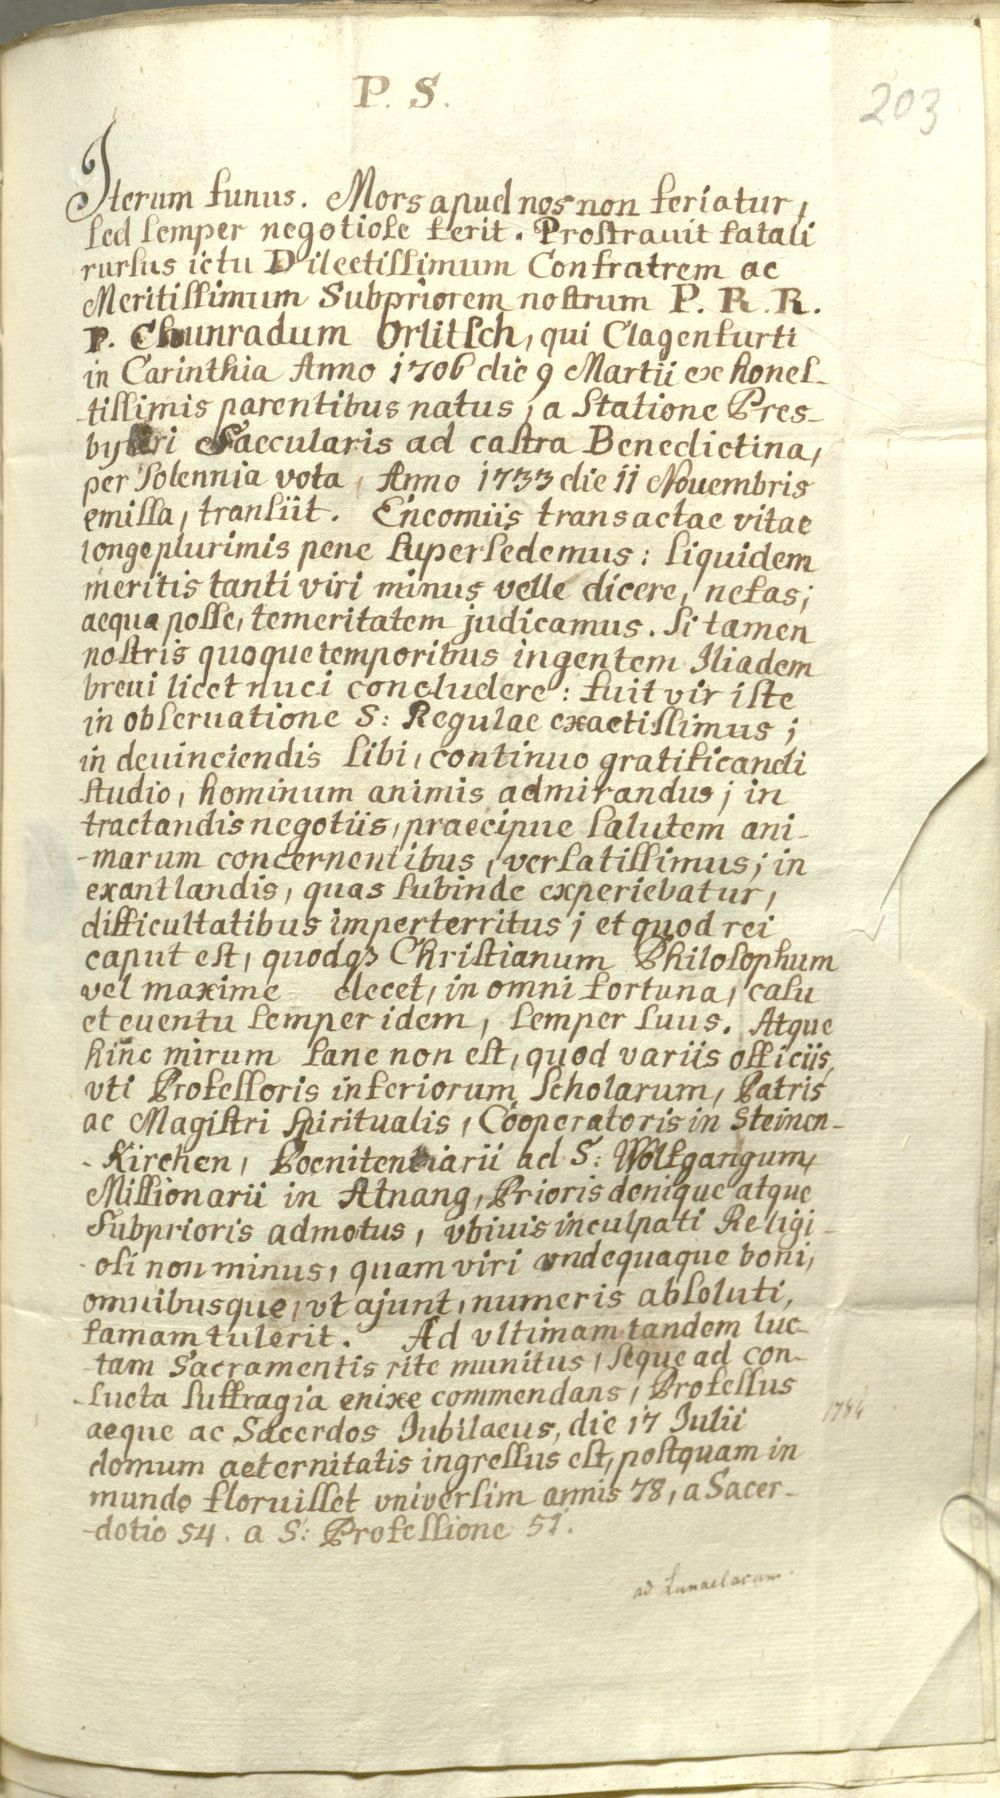 P. S.
203
Iterum funus. Mors apud nos non feriatur,
sed semper negotiose ferit. Prostrauit fatali
rursus ictu Dilectissimum Confratrem ac
Meritissimum Subpriorem nostrum P. R. R.
P. Chunradum Orlitsch, qui Clagenfurti
in Carinthia Anno 1706 die 9 Martii ex hones-
-tissimis parentibus natus, a statione Pres-
byteri Saecularis ad castra Benedictina,
per solennia vota, Anno 1733 die 11 Nouembris
emissa, transiit. Encomiis transactae vitae
longe plurimis pene supersedemus: siquidem
meritis tanti viri minus velle dicere, nefas;
aequa posse, temeritatem judicamus. Si tamen
nostris quoque temporibus ingentem Iliadem
breui licet nuci concludere: fuit vir iste
in obseruatione S: Regulae exactissimus;
in deuinciendis sibi, continuo gratificandi
studio, hominum animis admirandus; in
tractandis negotiis, praecipue salutem ani-
-marum concernentibus, versatissimus; in
exantlandis, quas subinde experiebatur,
difficultatibus imperterritus; et quod rei
caput est, quodq3 Christianum Philosophum
vel maxime decet, in omni fortuna, casu
et euentu semper idem, semper suus. Atque
hinc mirum sane non est, quod variis officiis,
vti Professoris inferiorum Scholarum, Patris
ac Magistri spiritualis, Cooperatoris in Steinen-
-Kirchen, Poenitentiarii ad S: Wolfgangum,
Missionarii in Atnang, Prioris denique atque
Subprioris admotus, vbiuis inculpati Religi-
-osi non minus, quam viri vndequaque boni,
omnibusque, vt ajunt, numeris absoluti,
famam tulerit. Ad vltimam tandem luc-
-tam Sacramentis rite munitus, seque ad con-
-sueta suffragia enixe commendans, Professus
aeque ac Sacerdos Iubilaeus, die 17 Iulii
1784
domum aeternitatis ingressus est, postquam in
mundo floruisset vniversim annis 78, a Sacer-
-dotio 54. a S: Professione 51.
ad Lunaelacum.